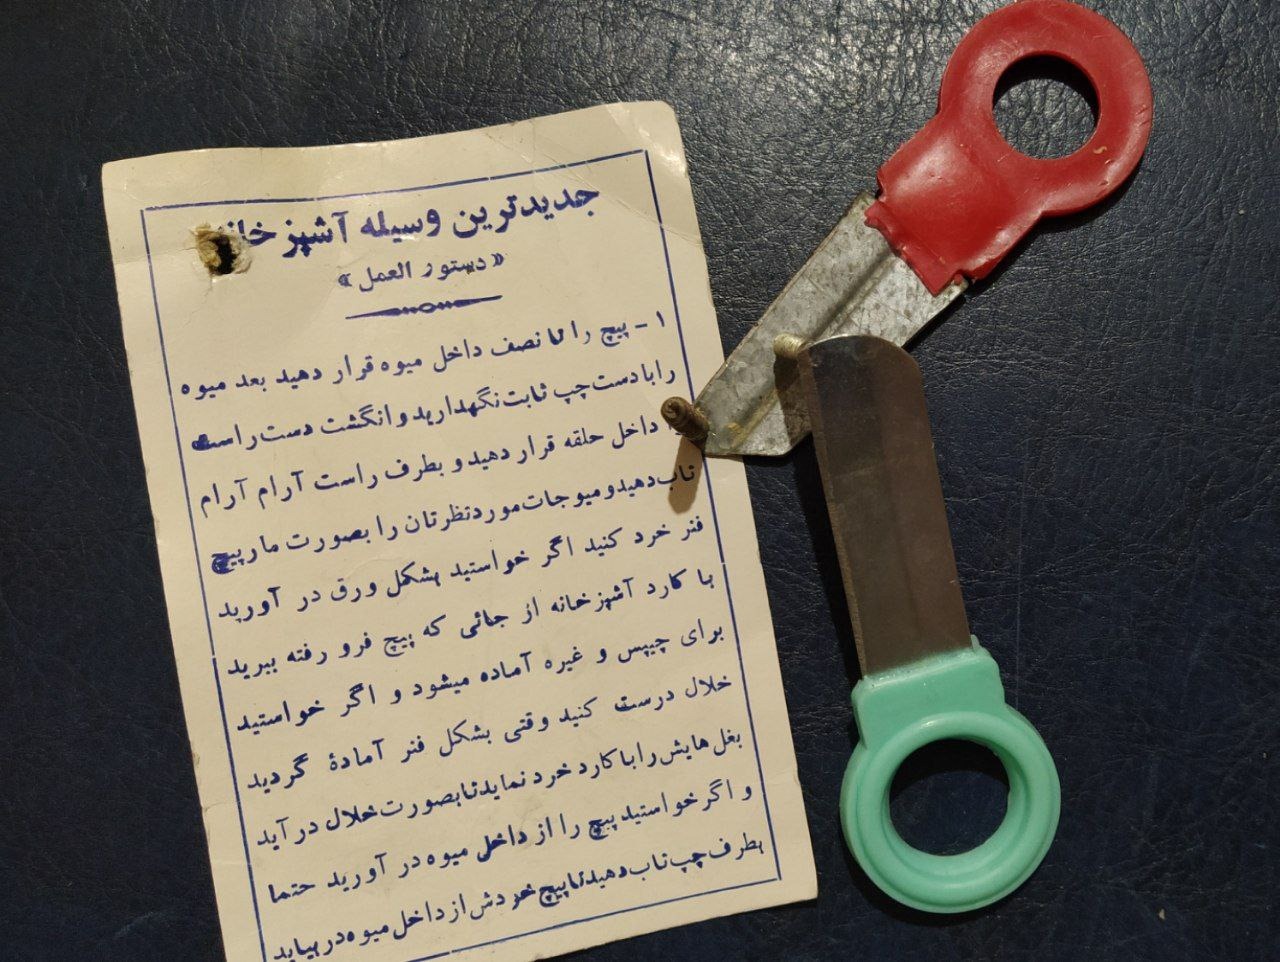 جدیدترین وسیله آشپز خانه
«دستور العمل»
۱ - پیچ را تا نصف داخل میوه قرار دهید بعد میوه
را با دست چپ ثابت نگهدارید و انگشت دست راست
داخل حلقه قرار دهید و بطرف راست آرام آرام
تاب دهید و میوجات مورد نظرتان را بصورت مارپیچ
فنر خرد کنید اگر خواستید بشکل ورق در آورید
با کارد آشپزخانه از جائی که پیچ فرو رفته ببرید
برای چیپس و غیره آماده میشود و اگر خواستید
خلال درست کنید وقتی بشکل فنر آمادۀ گردید
بغل هایش را با کارد خرد نماید تا بصورت خلال در آید
و اگر خواستید پیچ را از داخل میوه در آورید حتما
بطرف چپ تاب دهید تا پیچ خردش از داخل میوه در بیاید